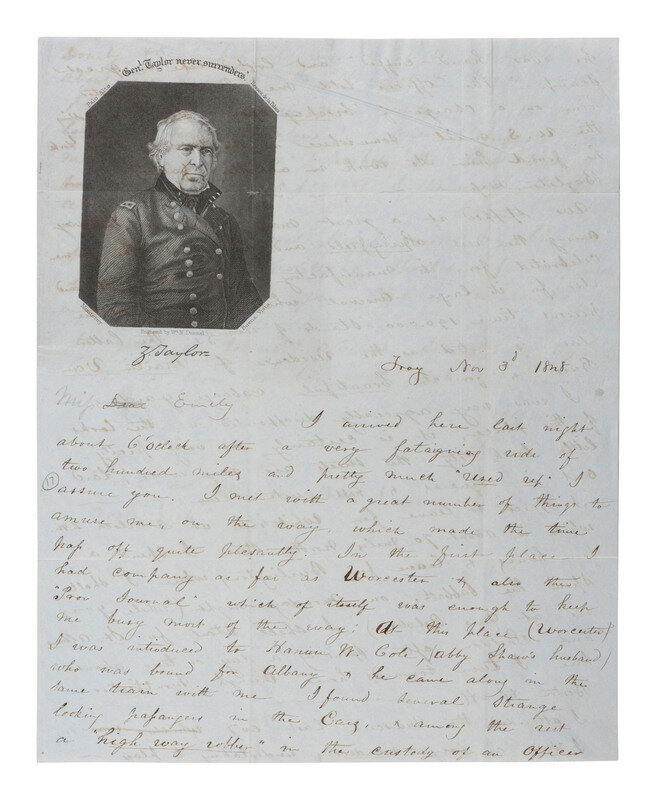 "Gen.l Taylor never surrenders."
Engraved by Wm. H. Dunnel.
Z Taylor
Troy Nov 3d 1848
Miss Dear Emily
I arrived here last night
about 6 O'clock after a very fataigning ride of
two hundred miles and pretty much "Used up" I
17
assure you. I met with a great number of things to
amuse me, on the way, which made the time
pass off quite plesantly. In the first place I
had company as far as Worcester & also the
"Prov Journal" which of itself was enough to keep
me busy most of the way; At this place (Worcester)
I was introduced to W. Cole, (Abby Shaw's husband)
who was bound for Albany & he came along in the
same train with me I found several Strange
looking passangers in the Cars, & among the rest
a "high way robber" in the custody of an Officer